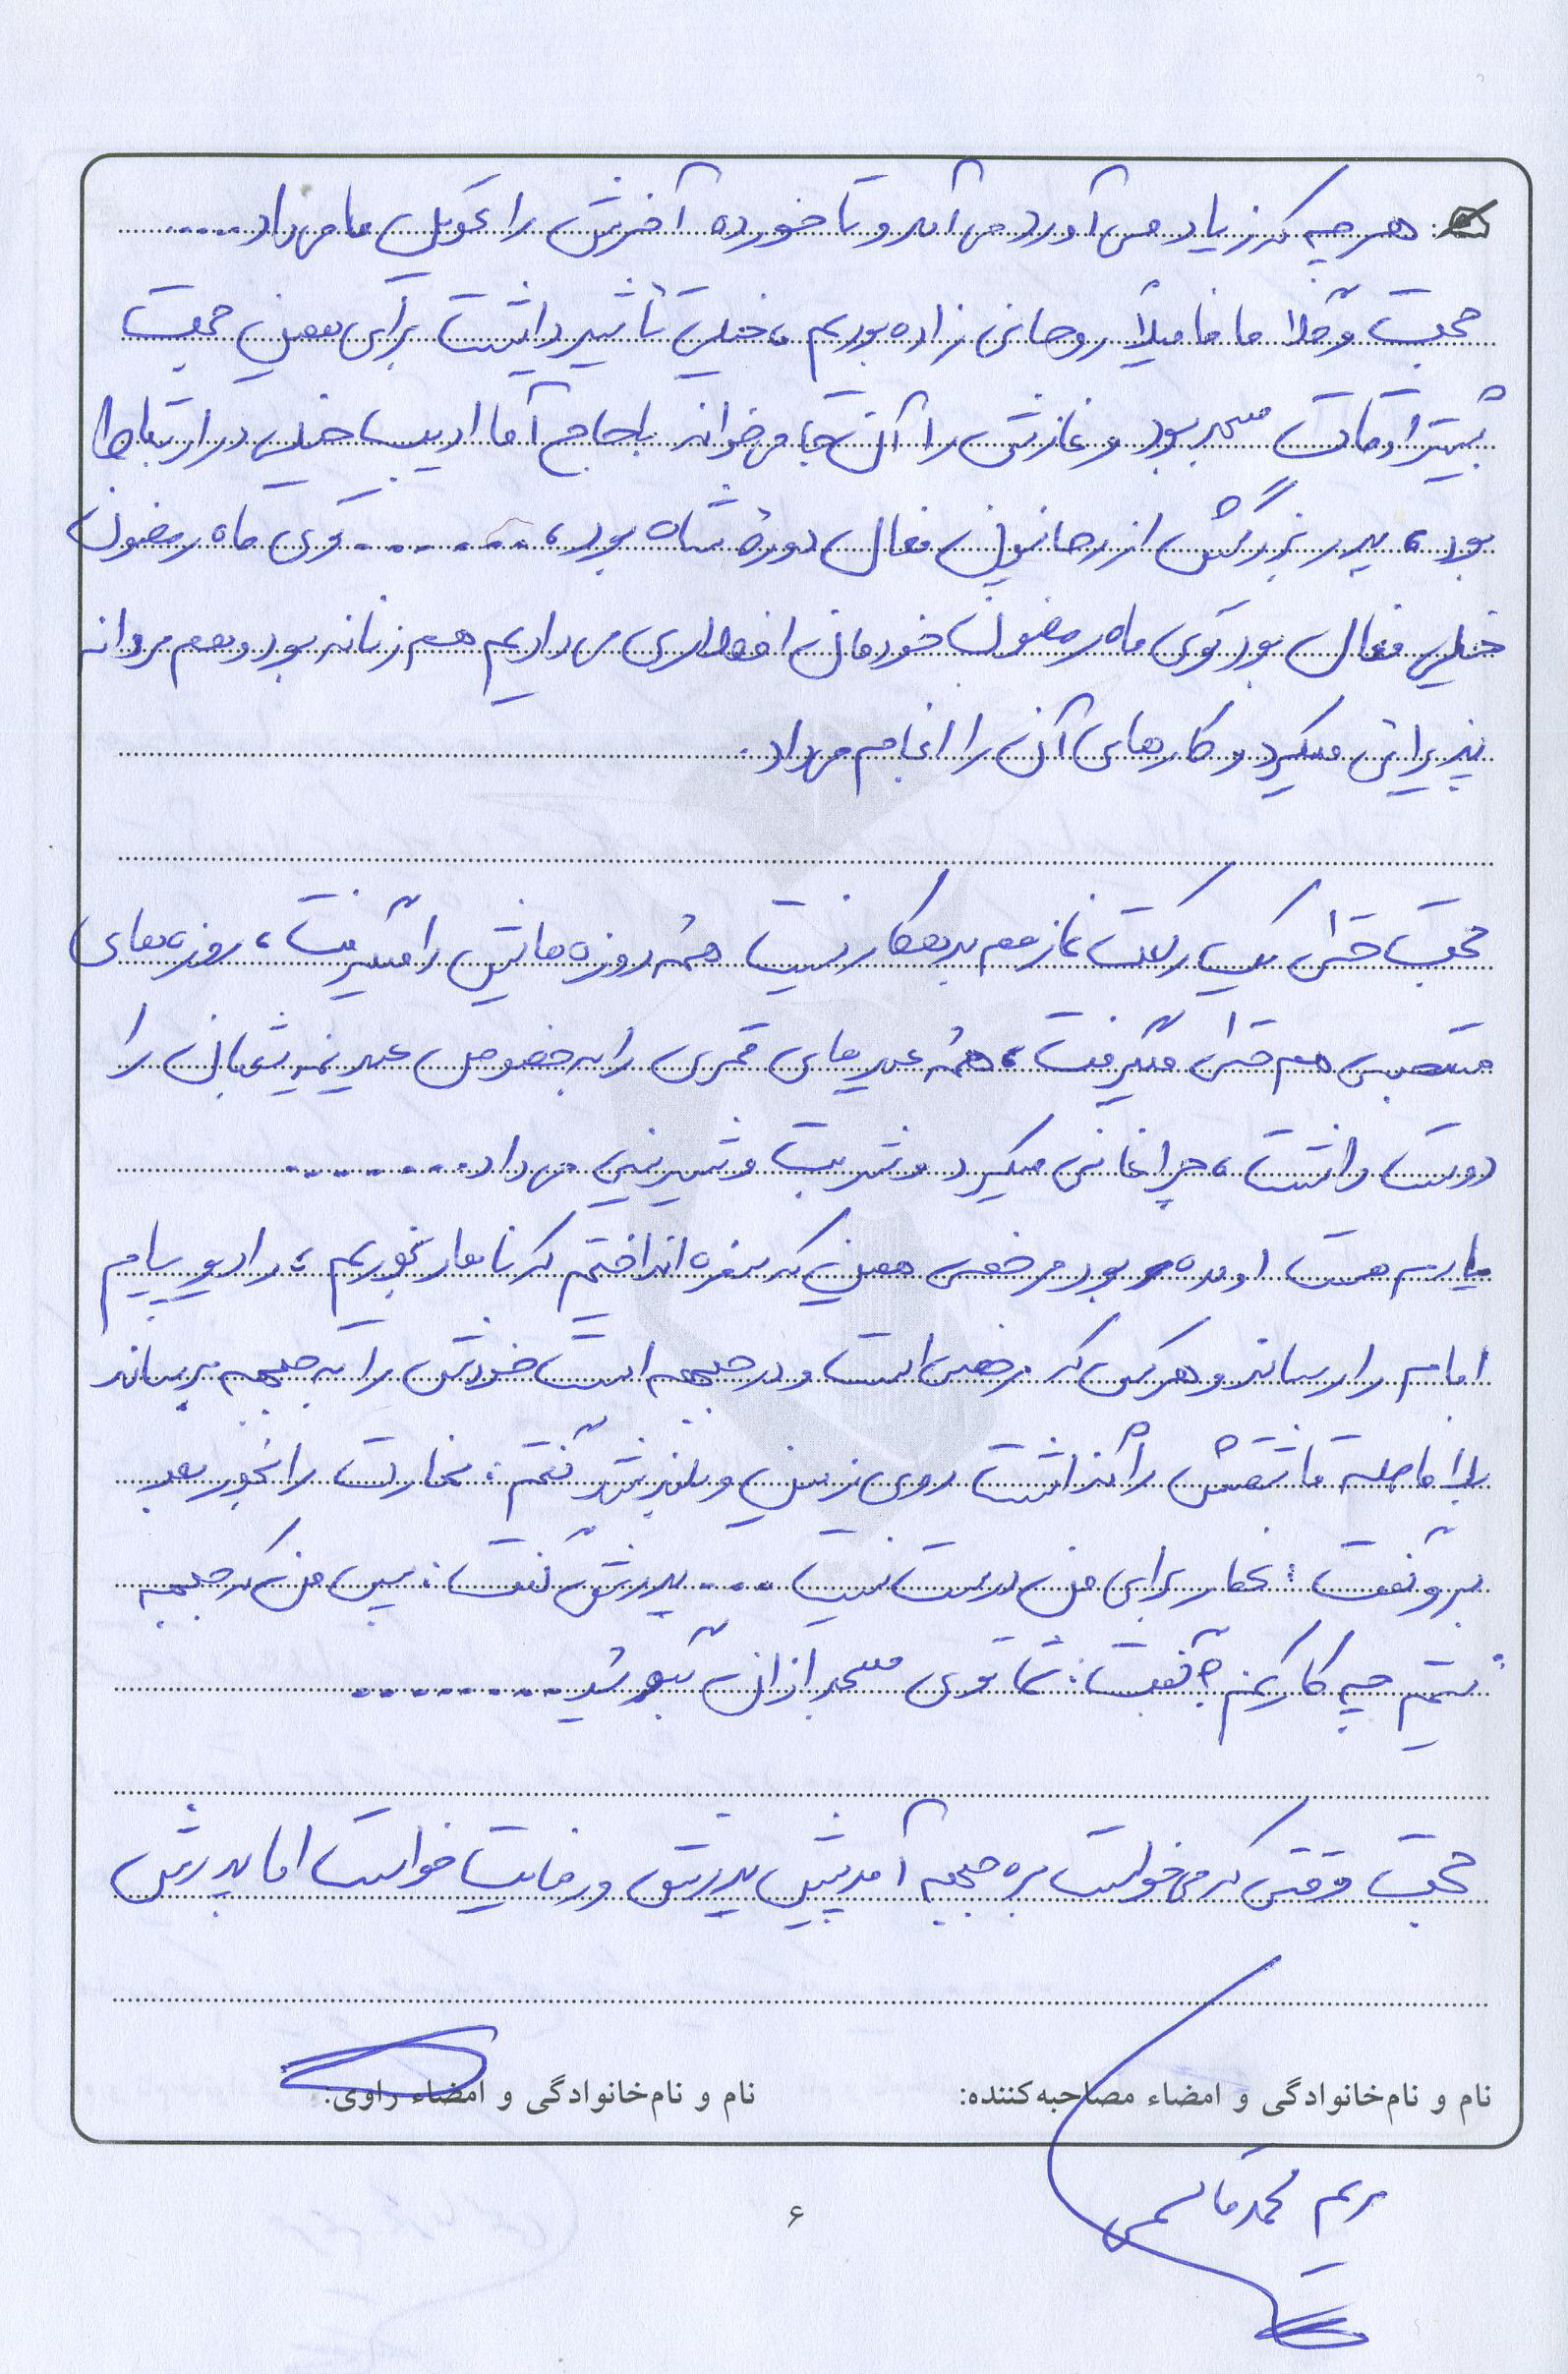 هر چه که زیاد می‌آورد می‌آمد و تا خورده آخرش را تحویل ما می‌داد.....
حجت و خدا ما فامیلاً روحانی زاده بودیم، خیلی تاثیر داشت برای همین حجت
بیشتر اوقات مسجد بود و نمازش را آن جا می‌خواند با حاج آقا ادیب خیلی در ارتباط
بود، پدر بزرگش از رحانیون فعال دورهٔ شاه بود، ....... توی ماه رمضون
خیلی فعال بود توی ماه رمضون خودمان افطاری می‌دادیم هم زنانه بود و هم مردانه
پذیرایی میکرد و کارهای آن را انجام می‌داد.
حجت حتی یک رکعت نماز هم بدهکار نیست همهٔ روزه هایش را میگرفت، روزه‌های
مستحبی هم حتی میگرفت، همهٔ عیدهای قمری را به خصوص عید نیمه شعبان را
دوست داشت، چراغانی میکرد و شربت و شیرینی می‌داد........
یادم هست اومده بود مرخصی همین که سفره انداختیم که ناهار بخوریم، رادیو پیام
امام را رساند و هر کس که مرخصی است و در جبهه است خودش را به جبهه برساند
بلافاصله قاشقش را گذاشت روی زمین و بلند شد گفتم: نهارت را بخور بعد
برو گفت: نهار برای من درست نیست ... پدرش گفت: پس من که جبهه
نیستم چه کار کنم؟ گفت: شما توی مسجد اذان بگوئید.........
حجت وقتی که می‌خواست بره جبهه آمد پیش پدرش و رضایت خواست اما پدرش
نام و نام‌خانوادگی و امضاء مصاحبه‌کننده: نام و نام‌خانوادگی و امضاء راوی:
مریم محمدقاسمی
۶